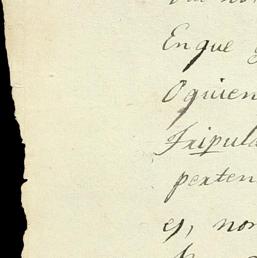 En que
O quien
Tripula
perten
es, non